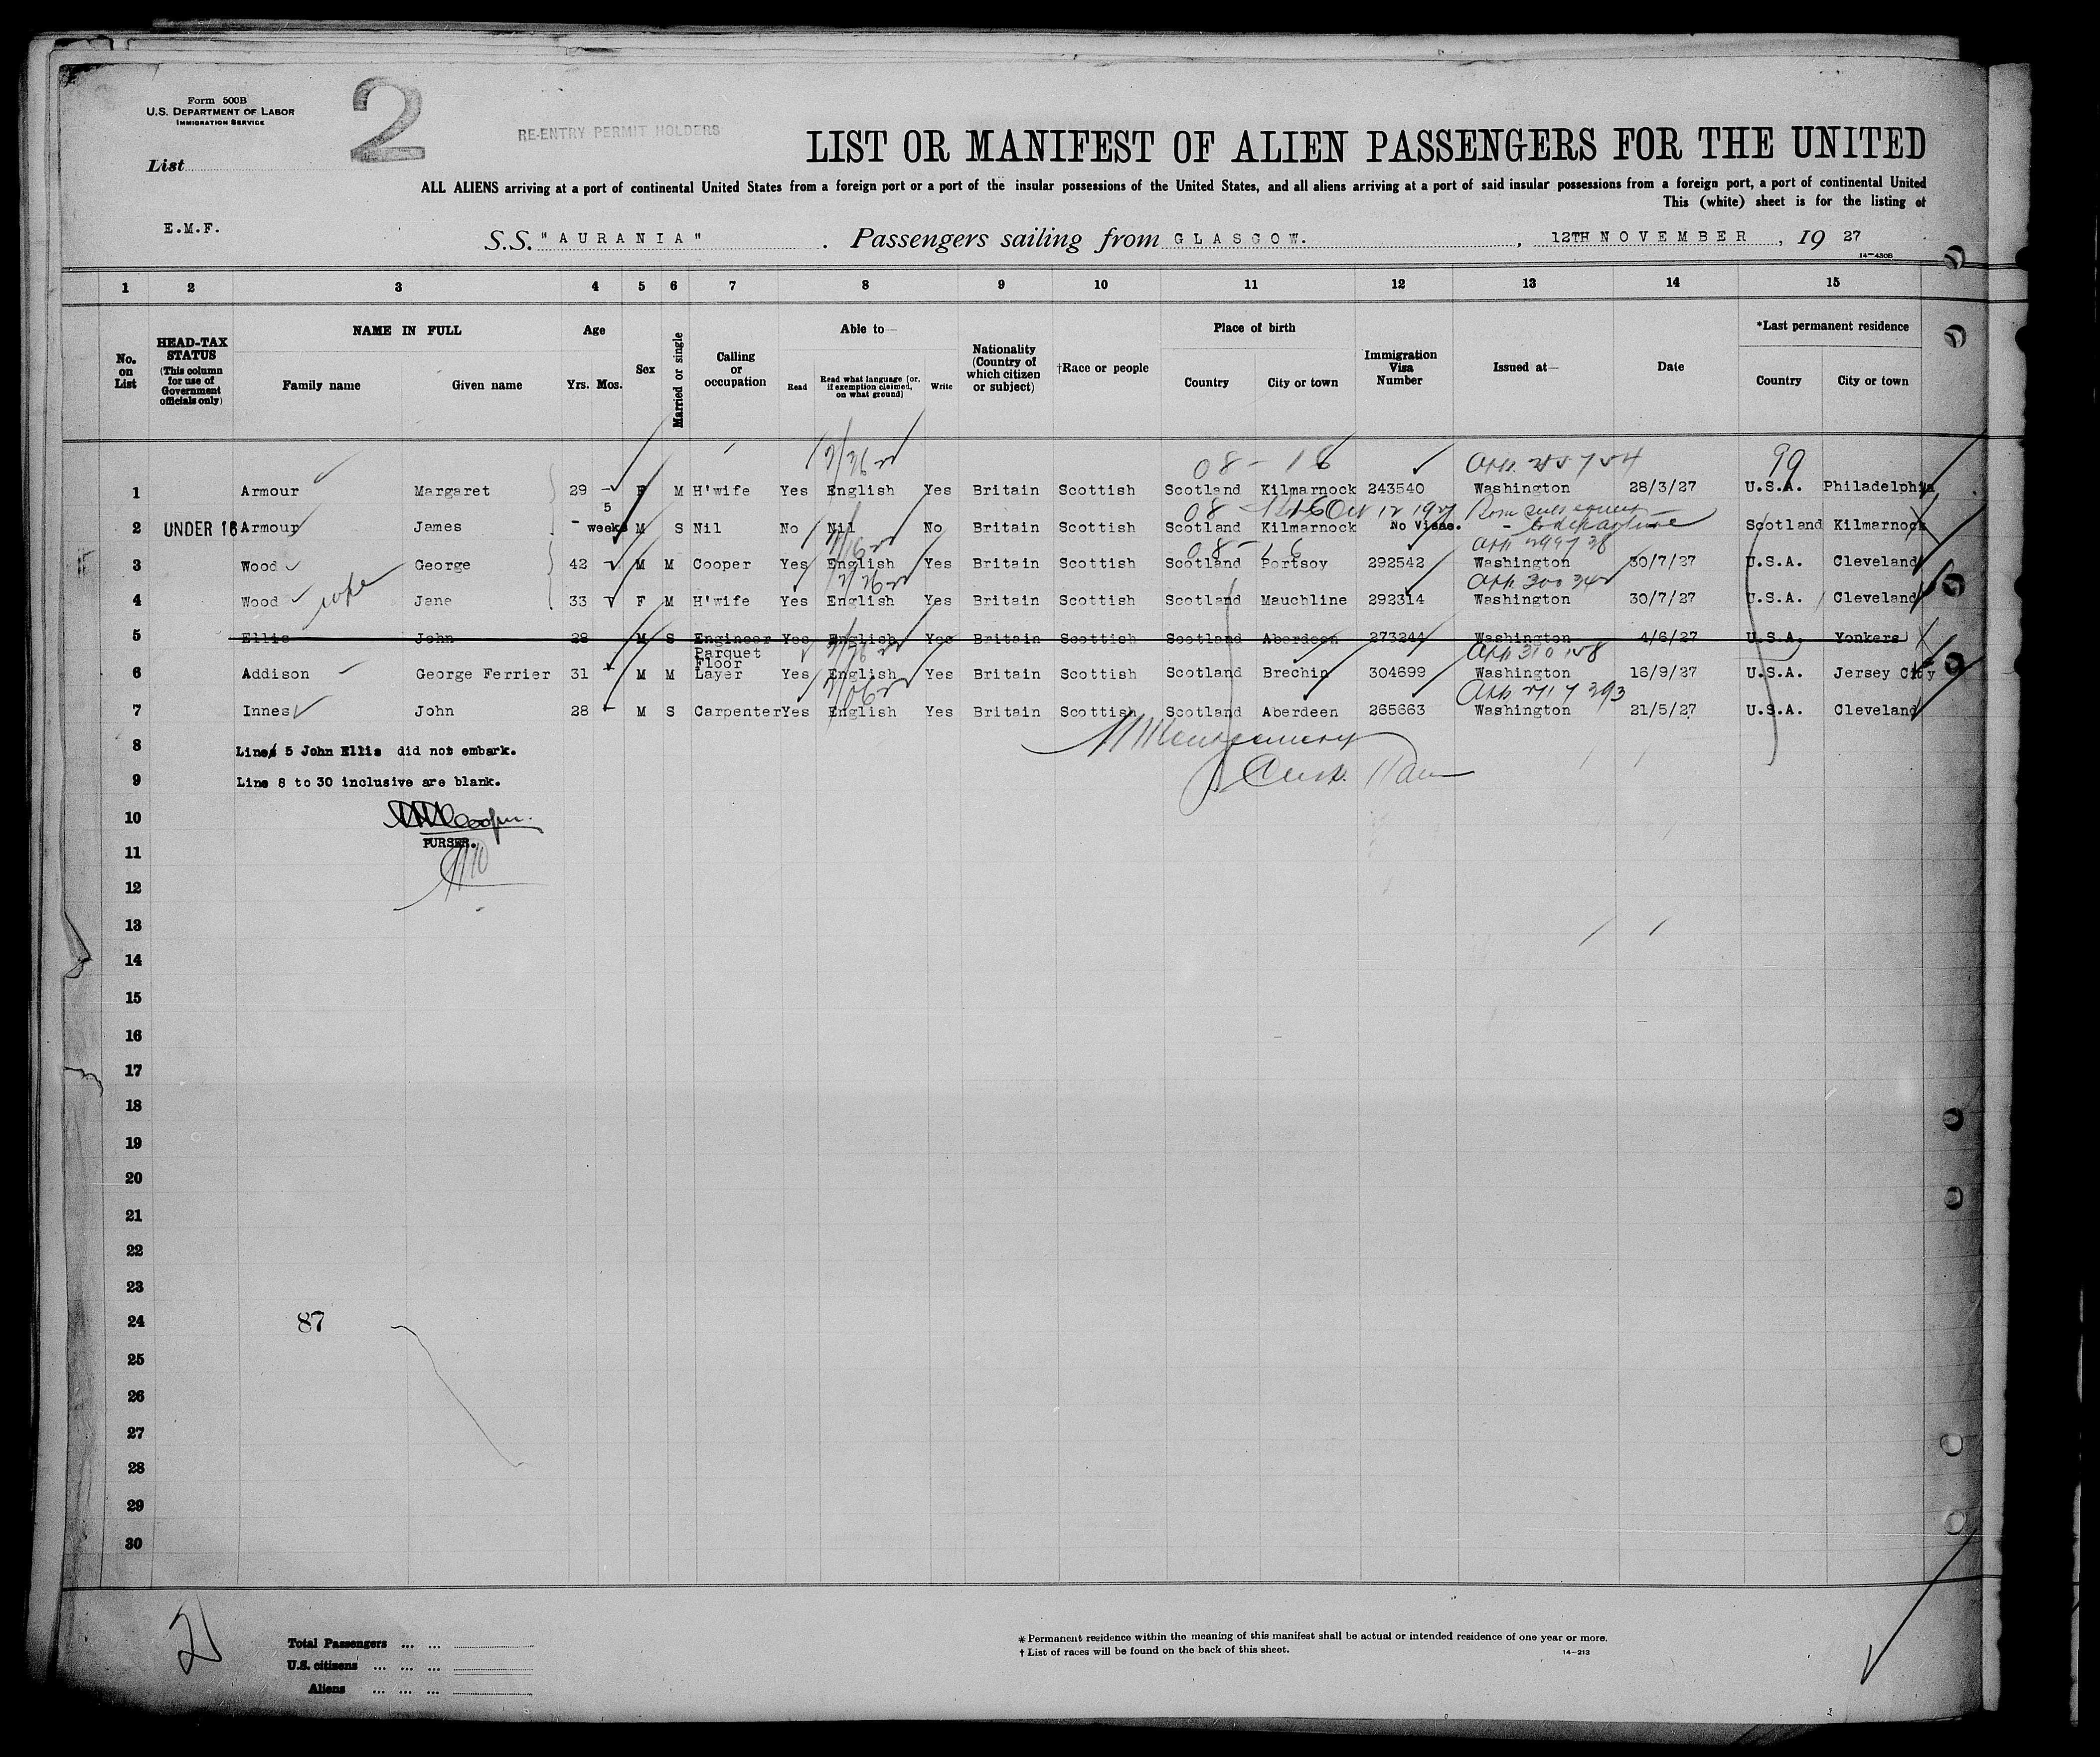 Form 500B
U.S. DEPARTMENT OF LABOR
IMMIGRATION SERVICE
2
RE-ENTRY PERMIT HOLDERS
List
LIST OR MANIFEST OF ALIEN PASSENGERS FOR THE UNITED
ALL ALIENS arriving at a port of continental United States from a foreign port or a port of the insular possessions of the United States, and all aliens arriving at a port of said insular possessions from a foreign port, a port of continental United
This (white) sheet is for the listing of
E.M.F.
S.S. "AURANIA" . Passengers sailing from GLASGOW. , 12TH NOVEMBER , 19 27
14—430B
1 2 3 4 5 6 7 8 9 10 11 12 13 14 15
No. on List
HEAD-TAX STATUS (This column for use of Government officials only)
NAME IN FULL Family name Given name
Age Yrs. Mos.
Sex
Married or single
Calling or occupation
Able to— Read Read what language [or, if exemption claimed, on what ground] Write
Nationality (Country of which citizen or subject)
†Race or people
Place of birth Country City or town
Immigration Visa Number
Issued at—
Date
*Last permanent residence Country City or town
08 - 18 99
1 Armour Margaret 29 F M H'wife Yes English Yes Britain Scottish Scotland Kilmarnock 243540 Washington 28/3/27 U.S.A. Philadelphia
08 - Oct 12 1927
2 UNDER 16 Armour James 5 weeks M S Nil No Nil No Britain Scottish Scotland Kilmarnock No Visae. Scotland Kilmarnock
08 - 16
3 Wood George 42 M M Cooper Yes English Yes Britain Scottish Scotland Portsoy 292542 Washington 30/7/27 U.S.A. Cleveland
4 Wood wife Jane 33 F M H'wife Yes English Yes Britain Scottish Scotland Mauchline 292314 Washington 30/7/27 U.S.A. Cleveland
5 Ellis John 28 M S Engineer Yes English Yes Britain Scottish Scotland Aberdeen 273244 Washington 4/6/27 U.S.A. Yonkers
6 Addison George Ferrier 31 M M Parquet Floor Layer Yes English Yes Britain Scottish Scotland Brechin 304699 Washington 16/9/27 U.S.A. Jersey City
7 Innes John 28 M S Carpenter Yes English Yes Britain Scottish Scotland Aberdeen 265663 Washington 21/5/27 U.S.A. Cleveland
8 Lines 5 John Ellis did not embark.
9 Line 8 to 30 inclusive are blank.
10
PURSER.
11
12
13
14
15
16
17
18
19
20
21
22
23
24 87
25
26
27
28
29
30
2
Total Passengers ... ...
U.S. citizens ... ... ...
Aliens ... ... ...
* Permanent residence within the meaning of this manifest shall be actual or intended residence of one year or more.
† List of races will be found on the back of this sheet.
14—213